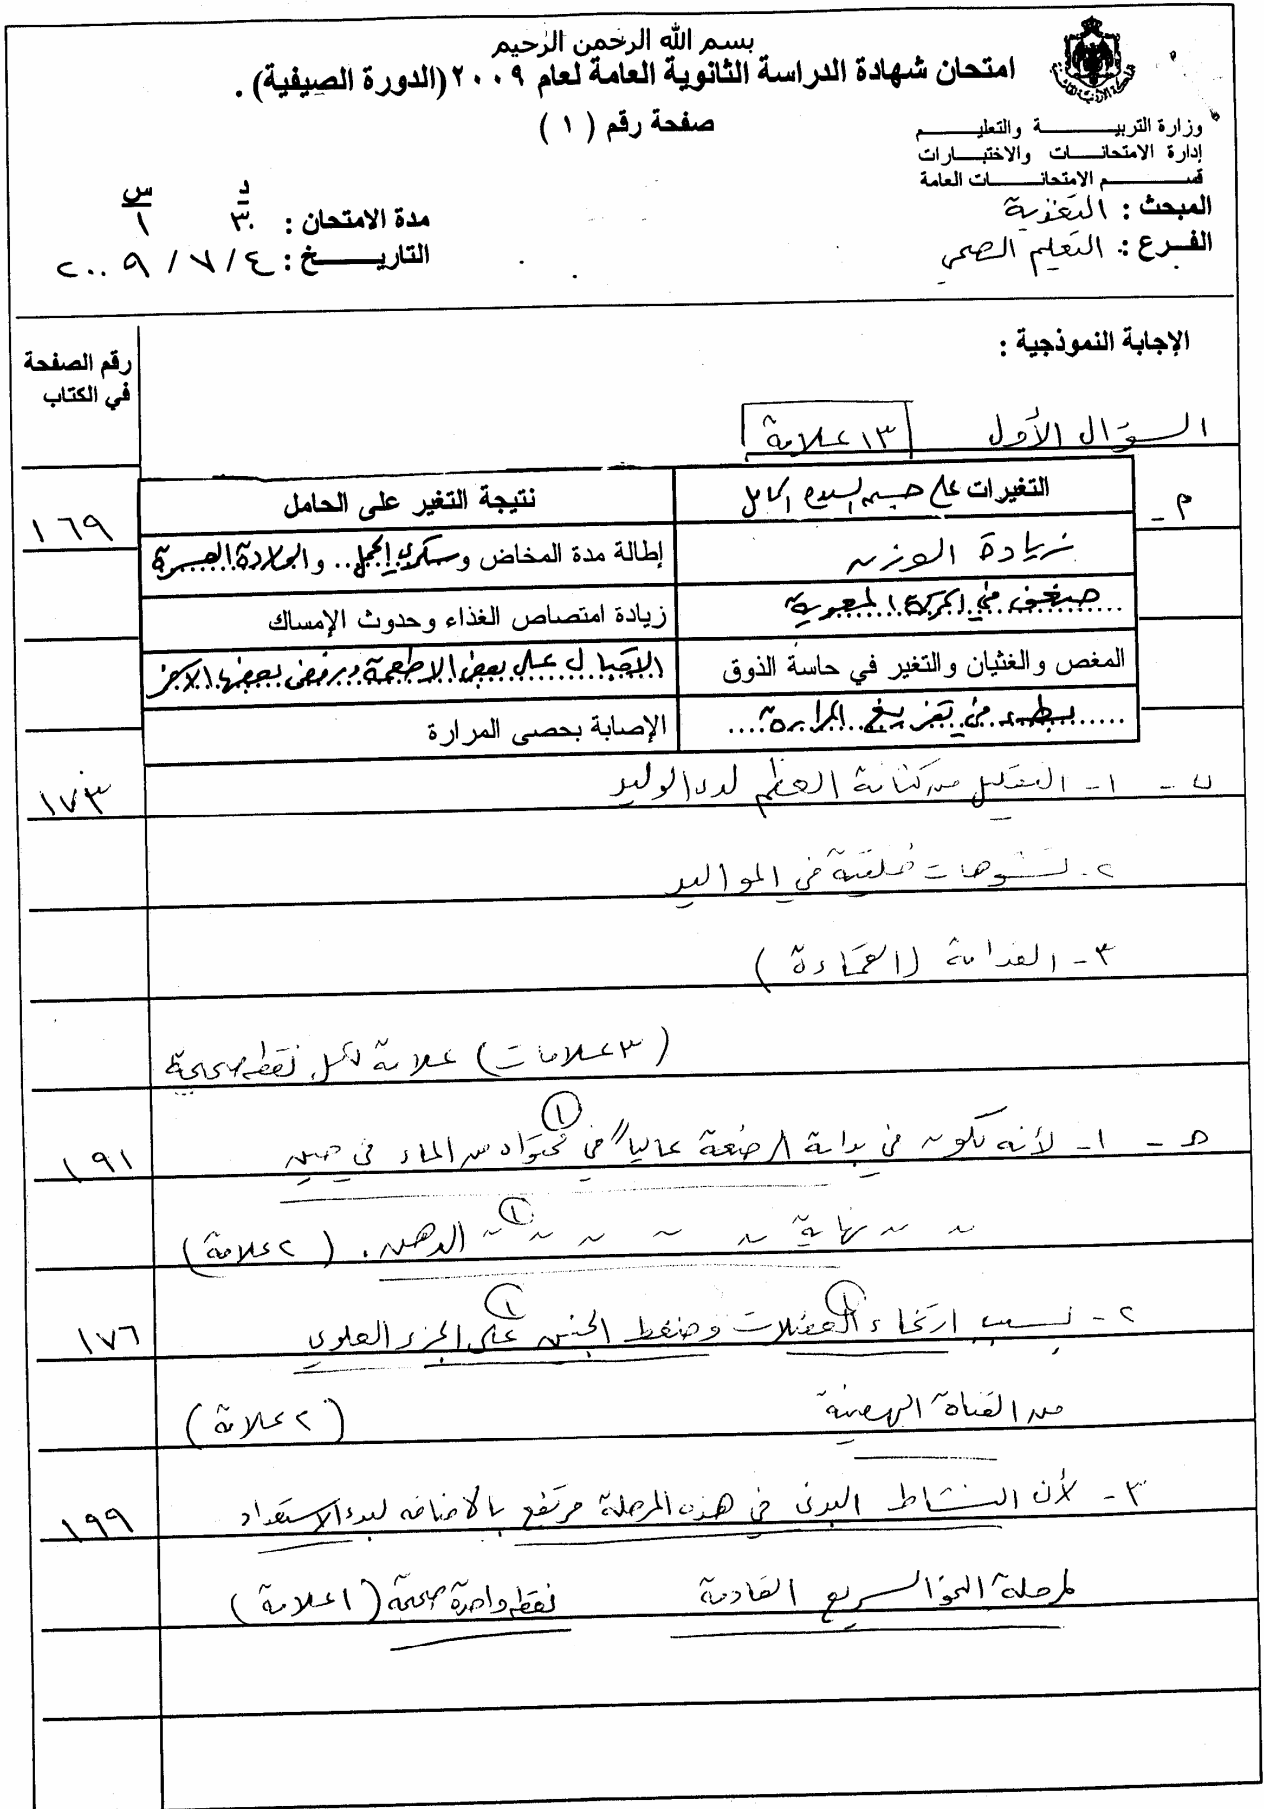 بسم الله الرحمن الرحيم
امتحان شهادة الدراسة الثانوية العامة لعام ٢٠٠٩ (الدورة الصيفية) .
صفحة رقم ( ١ )
وزارة التربيـــــــة والتعليــــــم
إدارة الامتحانـــات والاختبـــارات
قســــــم الامتحانـــــات العامة
المبحث : التغذية
الفـرع : التعليم الصحي
د س
مدة الامتحان : ٣٠ ١
التاريـــــخ : ٤ / ٧ / ٢٠٠٩
الإجابة النموذجية :
رقم الصفحة
في الكتاب
السؤال الأول ١٣ علامة
التغيرات على جسم السيدة الحامل نتيجة التغير على الحامل
م - زيادة الوزن إطالة مدة المخاض وسكري الحمل .. والولادة العسرة ١٦٩
ضعف في الحركة المعوية زيادة امتصاص الغذاء وحدوث الإمساك
المغص والغثيان والتغير في حاسة الذوق الاقبال على بعض الاطعمة ورفض بعضها الآخر
بطء في تفريغ المرارة الإصابة بحصى المرارة
ب - ١- التقليل من كثافة العظم لدى الوليد ١٧٣
٢- تشوهات خلقية في المواليد
٣- الفدامة (القماءة)
(٣ علامات) علامة لكل نقطة صحيحة
ج - ١- لأنه يكون في بداية الرضعة عالياً في محتواه من الماء في حين ١٩١
~ ~ نهاية ~ ~ ~ ~ ~ الدهن . (٢ علامة)
٢- بسبب ارتخاء العضلات وضغط الجنين على الجزء العلوي ١٧٦
من القناة الهضمية (٢ علامة)
٣- لأن النشاط البدني في هذه المرحلة مرتفع بالاضافة لبدء الاستعداد ١٩٩
لمرحلة النمو السريع القادمة نقطة واحدة صحيحة (١ علامة)